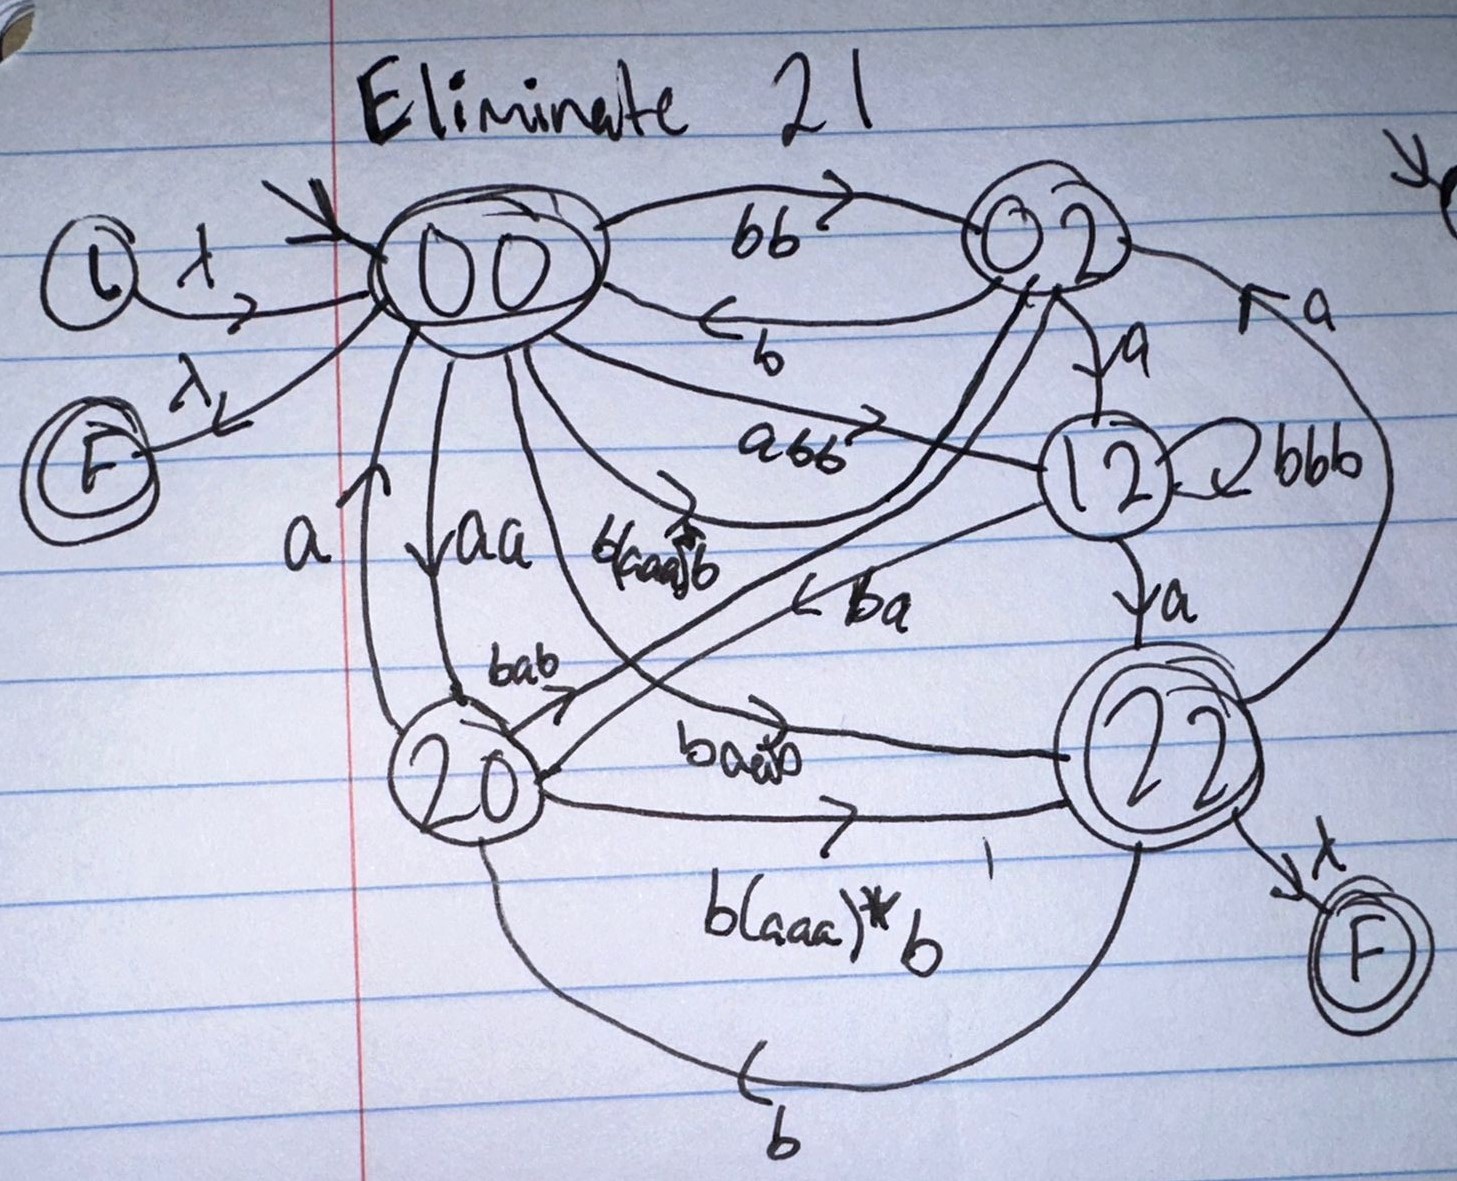 Eliminate 21
i λ 00 bb 02
b
λ a a
F abb 12 bbb
a aa b(aaa)*b ba a
bab
20 22
b(aaa)*b λ
F
b